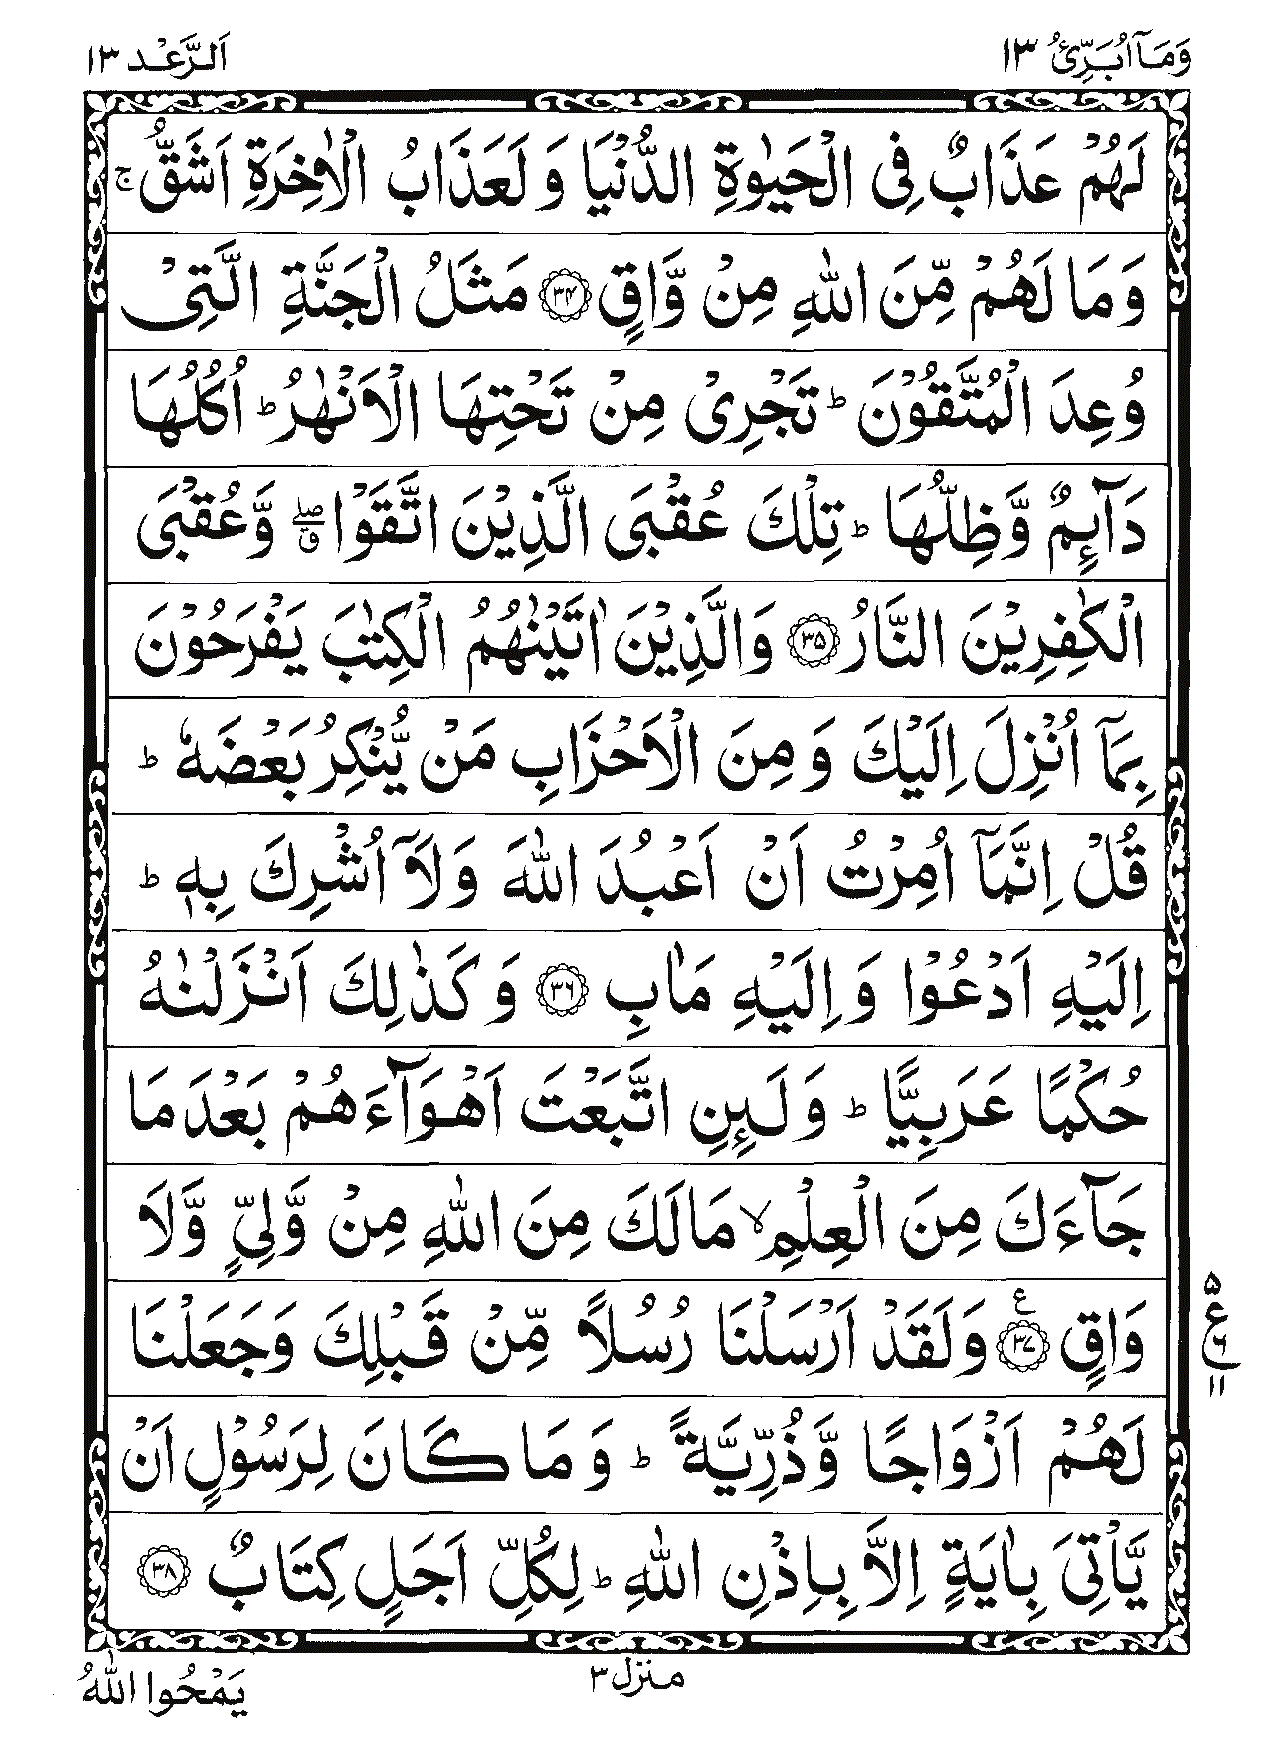 وَمَاۤ اُبَرِّئُ ١٣ اَلرَّعْد ١٣
لَهُمْ عَذَابٌ فِی الْحَیٰوةِ الدُّنْیَا وَ لَعَذَابُ الْاٰخِرَةِ اَشَقُّ ۚ
وَ مَا لَهُمْ مِّنَ اللّٰهِ مِنْ وَّاقٍ ﴿۳۴﴾ مَثَلُ الْجَنَّةِ الَّتِیْ
وُعِدَ الْمُتَّقُوْنَ ؕ تَجْرِیْ مِنْ تَحْتِهَا الْاَنْهٰرُ ؕ اُكُلُهَا
دَآىِٕمٌ وَّظِلُّهَا ؕ تِلْكَ عُقْبَی الَّذِیْنَ اتَّقَوْا ۖۗ وَّعُقْبَی
الْكٰفِرِیْنَ النَّارُ ﴿۳۵﴾ وَالَّذِیْنَ اٰتَیْنٰهُمُ الْكِتٰبَ یَفْرَحُوْنَ
بِمَاۤ اُنْزِلَ اِلَیْكَ وَ مِنَ الْاَحْزَابِ مَنْ یُّنْكِرُ بَعْضَهٗ ؕ
قُلْ اِنَّمَاۤ اُمِرْتُ اَنْ اَعْبُدَ اللّٰهَ وَ لَاۤ اُشْرِكَ بِهٖ ؕ
اِلَیْهِ اَدْعُوْا وَ اِلَیْهِ مَاٰبِ ﴿۳۶﴾ وَ كَذٰلِكَ اَنْزَلْنٰهُ
حُكْمًا عَرَبِیًّا ؕ وَ لَىِٕنِ اتَّبَعْتَ اَهْوَآءَهُمْ بَعْدَ مَا
جَآءَكَ مِنَ الْعِلْمِ ۙ مَا لَكَ مِنَ اللّٰهِ مِنْ وَّلِیٍّ وَّلَا
وَاقٍ ﴿۳۷﴾ ع وَلَقَدْ اَرْسَلْنَا رُسُلًا مِّنْ قَبْلِكَ وَجَعَلْنَا
۵
ع
۶
۱۱
لَهُمْ اَزْوَاجًا وَّذُرِّیَّةً ؕ وَ مَا كَانَ لِرَسُوْلٍ اَنْ
یَّاْتِیَ بِاٰیَةٍ اِلَّا بِاِذْنِ اللّٰهِ ؕ لِكُلِّ اَجَلٍ كِتَابٌ ﴿۳۸﴾
منزل ٣
یَمْحُوا اللّٰهُ